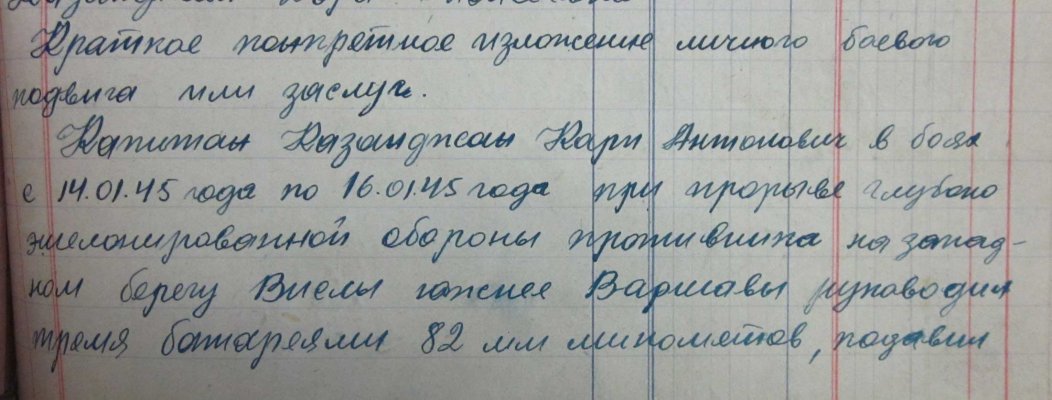 Краткое конкретное изложение личного боевого
подвига или заслуг.
Капитан Казанджан Карп Антонович в боях
с 14.01.45 года по 16.01.45 года при прорыве глубоко
эшелонированной обороны противника на запад-
ном берегу Вислы южнее Варшавы руководил
тремя батареями 82 мм минометов, подавил